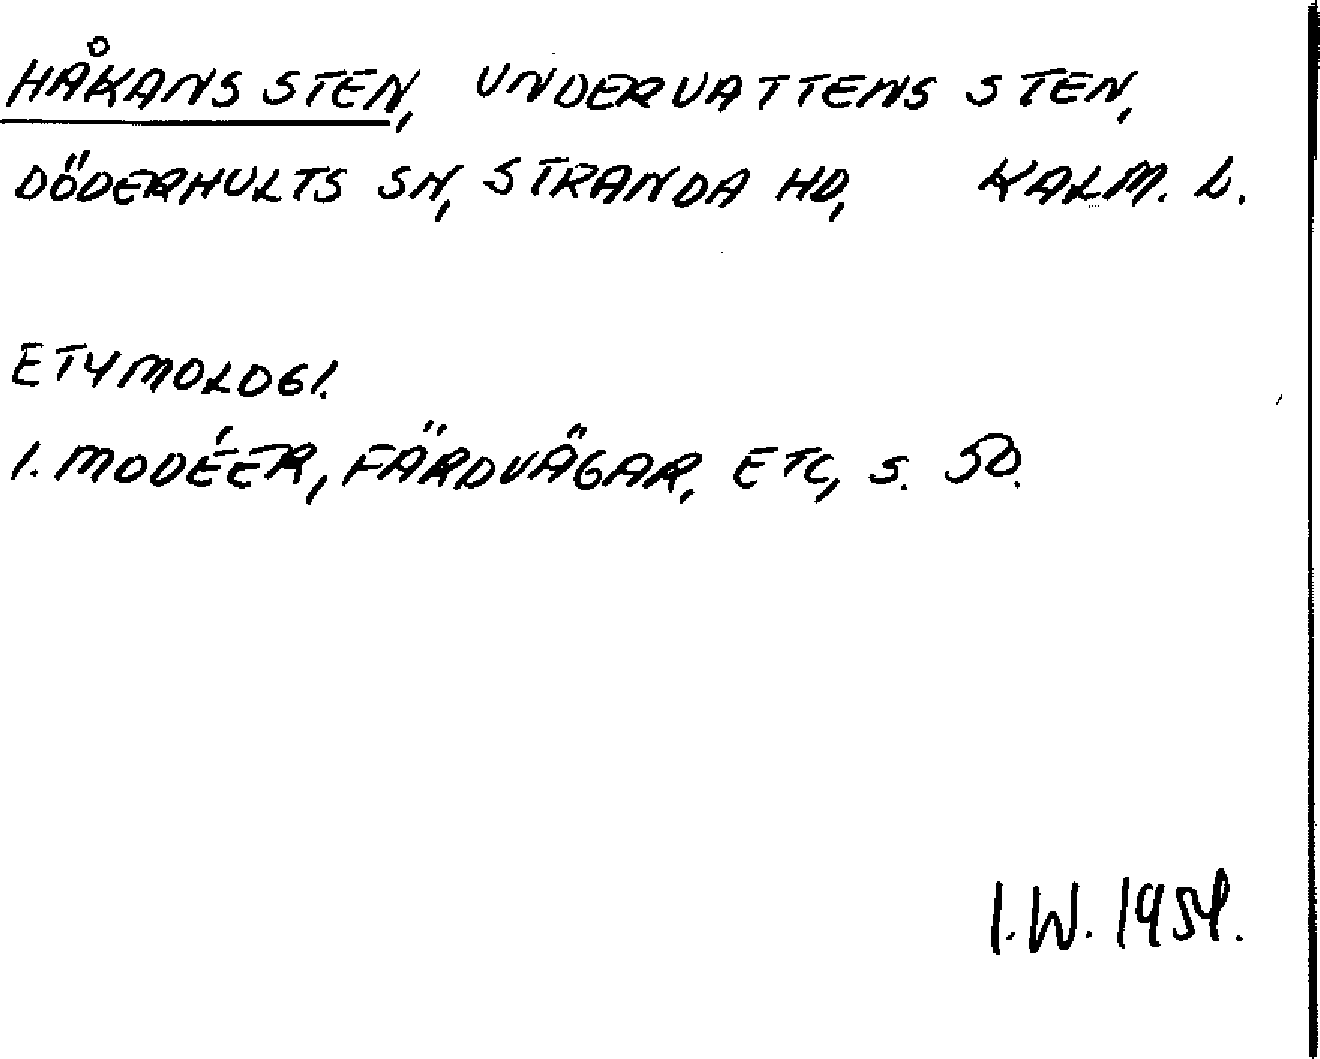 HÅKANS STEN, UNDERVATTENS STEN,
DÖDERHULTS SN, STRANDA HD, KALM. L.
ETYMOLOGI.
I. MODÉER, FÄRDVÄGAR, ETC, S. 50.
I.W. 1954.